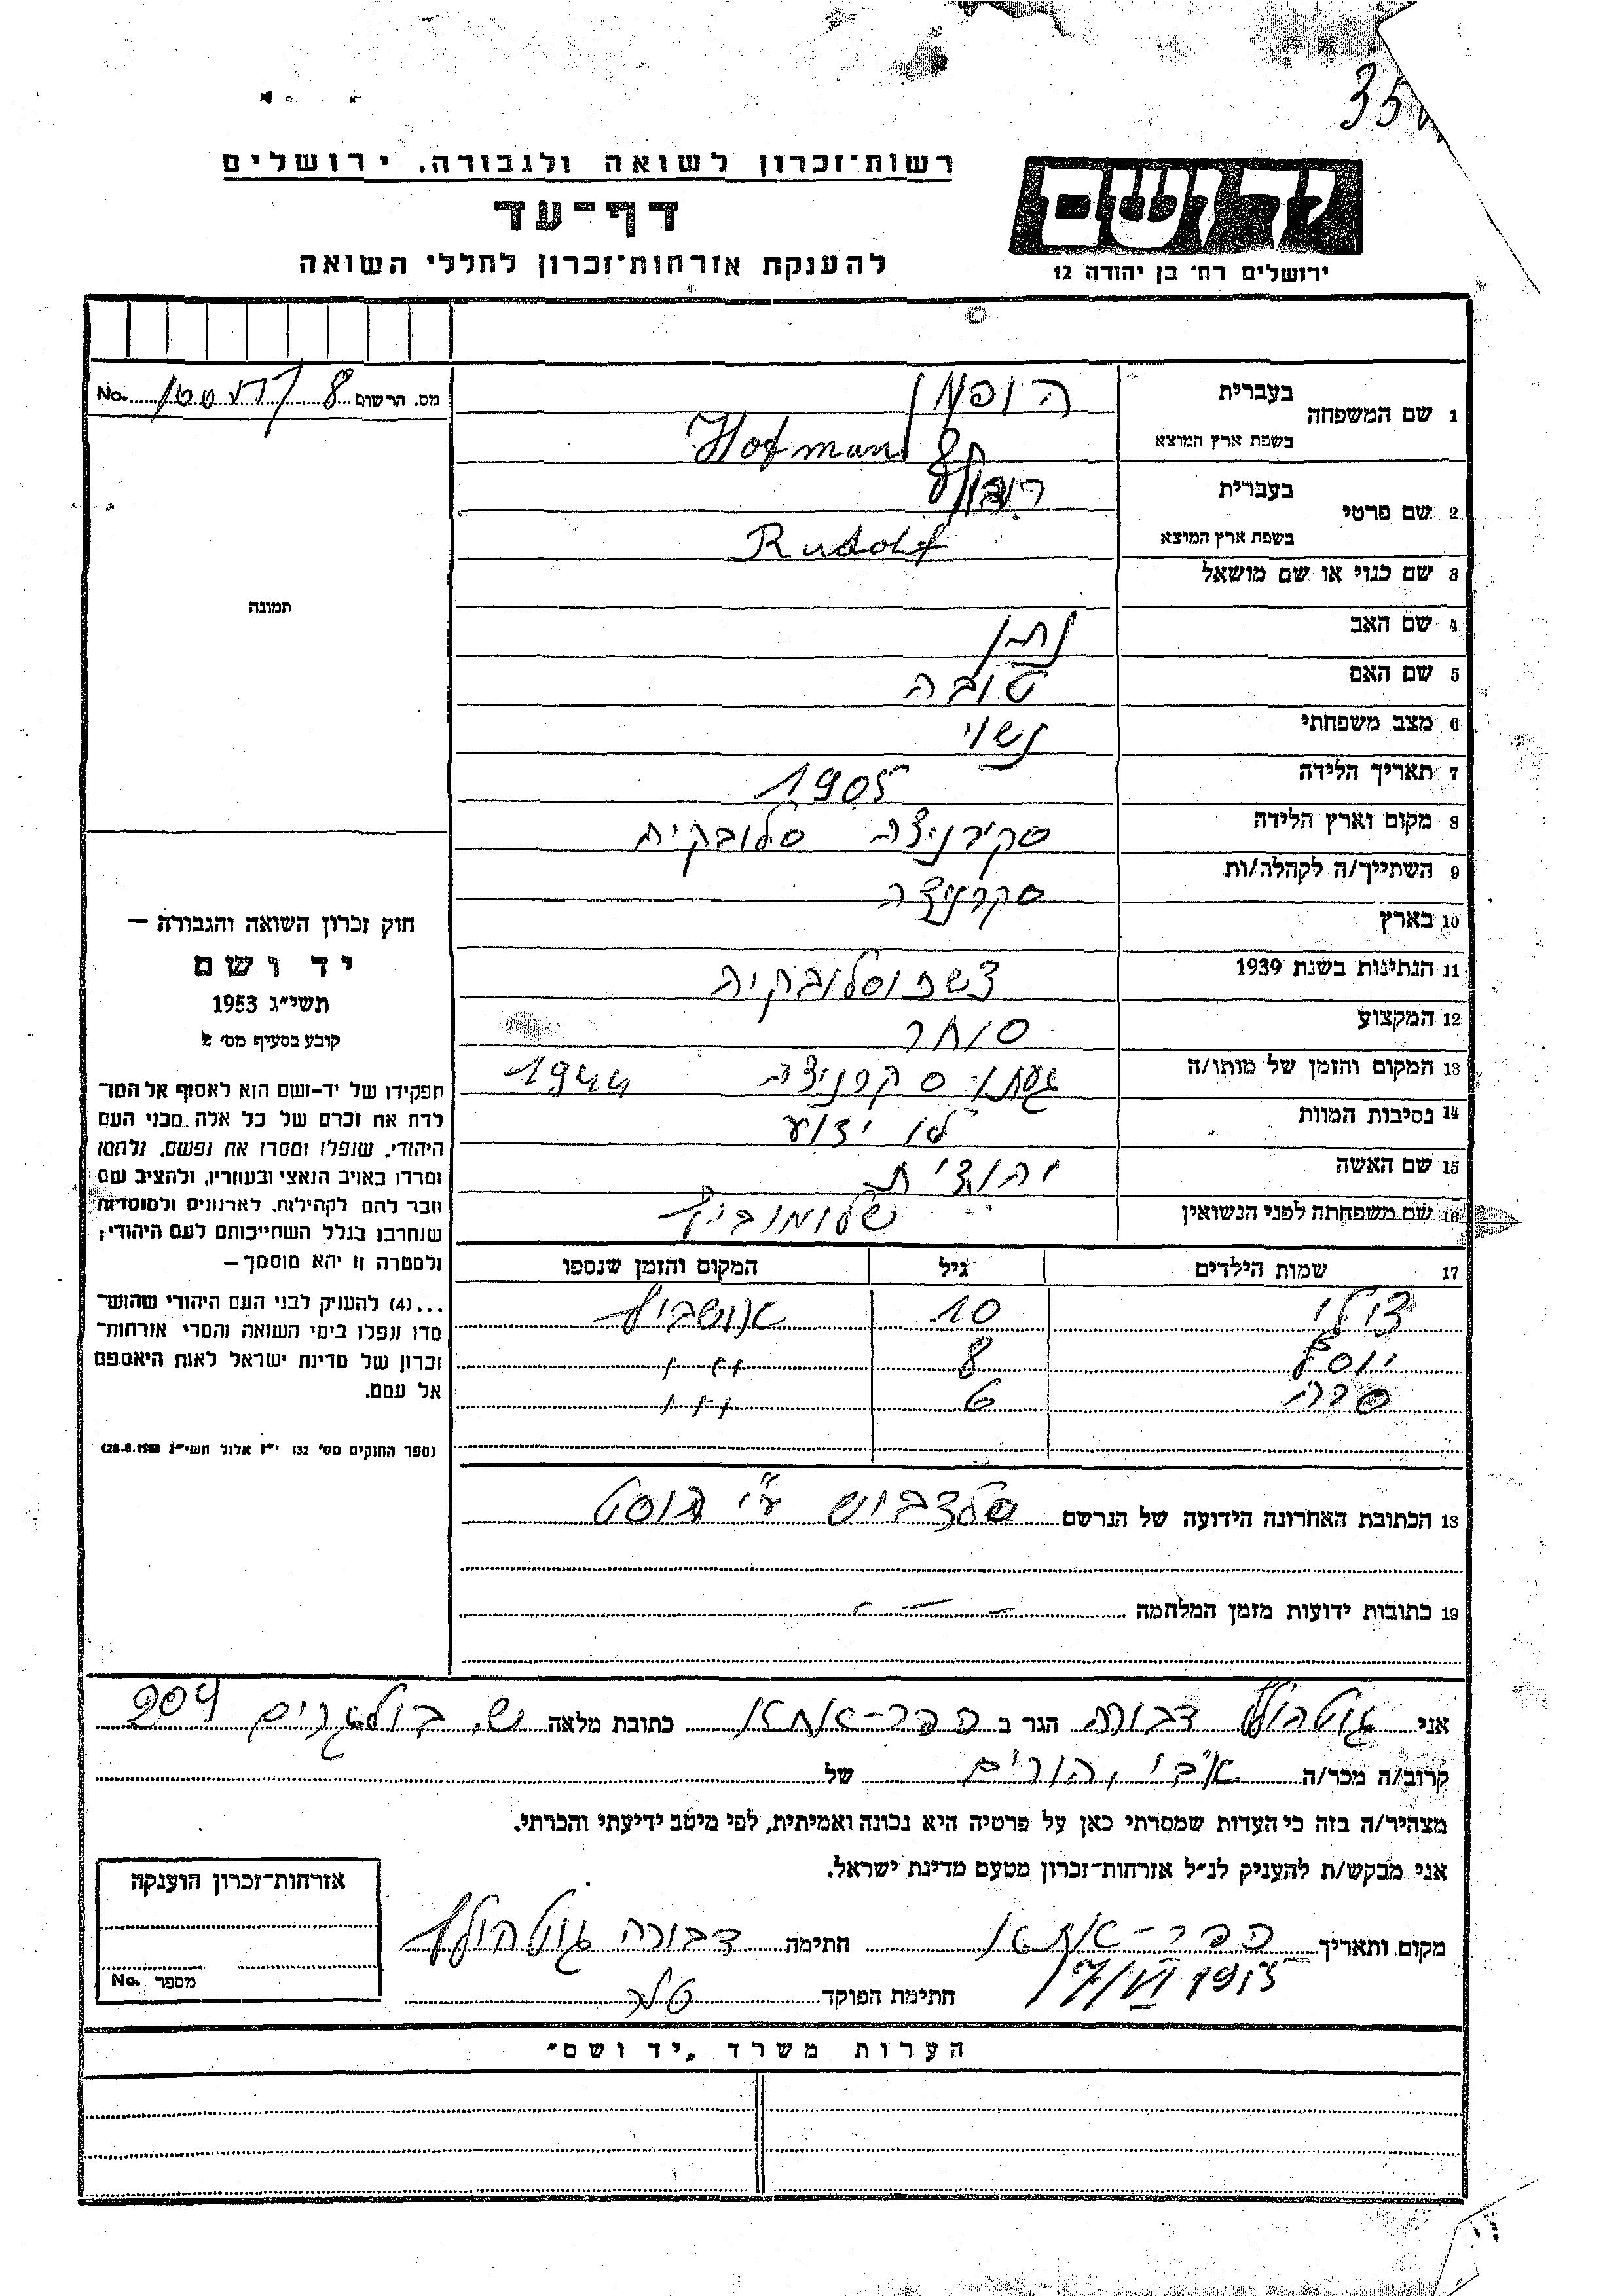 35
רשות־זכרון לשואה ולגבורה, ירושלים
דף־עד
להענקת אזרחות־זכרון לחללי השואה
יד ושם
ירושלים רח' בן יהודה 12
מס. הרשום 8 No.
1 שם המשפחה בעברית הופמן
בשפת ארץ המוצא Hofman
2 שם פרטי בעברית רודולף
בשפת ארץ המוצא Rudolf
3 שם כנוי או שם מושאל
4 שם האב נתן
5 שם האם טובה
6 מצב משפחתי נשוי
7 תאריך הלידה 1905
8 מקום וארץ הלידה סקירניצה סלובקיה
9 השתייך/ה לקהלה/ות סקרניצה
10 בארץ
11 הנתינות בשנת 1939
12 המקצוע סוחר
13 המקום והזמן של מותו/ה סקרניצה 1944
14 נסיבות המוות לא ידוע
15 שם האשה יהודית
16 שם משפחתה לפני הנשואין שלומוביץ
17 שמות הילדים גיל המקום והזמן שנספו
צילי 10 אושביץ
יוסף 8 -++-
שרה 6 -+++-
18 הכתובת האחרונה הידועה של הנרשם ע"י הוסט
19 כתובות ידועות מזמן המלחמה - - -
תמונה
חוק זכרון השואה והגבורה –
יד ושם
תשי"ג 1953
קובע בסעיף מס' 2
תפקידו של יד-ושם הוא לאסוף אל המו־
לדת את זכרם של כל אלה מבני העם
היהודי, שנפלו ומסרו את נפשם, נלחמו
ומרדו באויב הנאצי ובעוזריו, ולהציב שם
וזכר להם לקהילות, לארגונים ולמוסדות
שנחרבו בגלל השתייכותם לעם היהודי,
ולמטרה זו יהא מוסמך–
...(4) להעניק לבני העם היהודי שהוש־
מדו ונפלו בימי השואה והמרי אזרחות־
זכרון של מדינת ישראל לאות היאספם
אל עמם.
(ספר החוקים מס' 132 י"ז אלול תשי"ג 28.8.1953)
אני דבורה הגר ב כפר-אתא כתובת מלאה ש. בולגרים 904
קרוב/ה מכר/ה של
מצהיר/ה בזה כי העדות שמסרתי כאן על פרטיה היא נכונה ואמיתית, לפי מיטב ידיעתי והכרתי.
אני מבקש/ת להעניק לנ"ל אזרחות־זכרון מטעם מדינת ישראל.
מקום ותאריך כפר-אתא חתימה דבורה
חתימת הפוקד
אזרחות־זכרון הוענקה
מספר No.
הערות משרד „יד ושם"